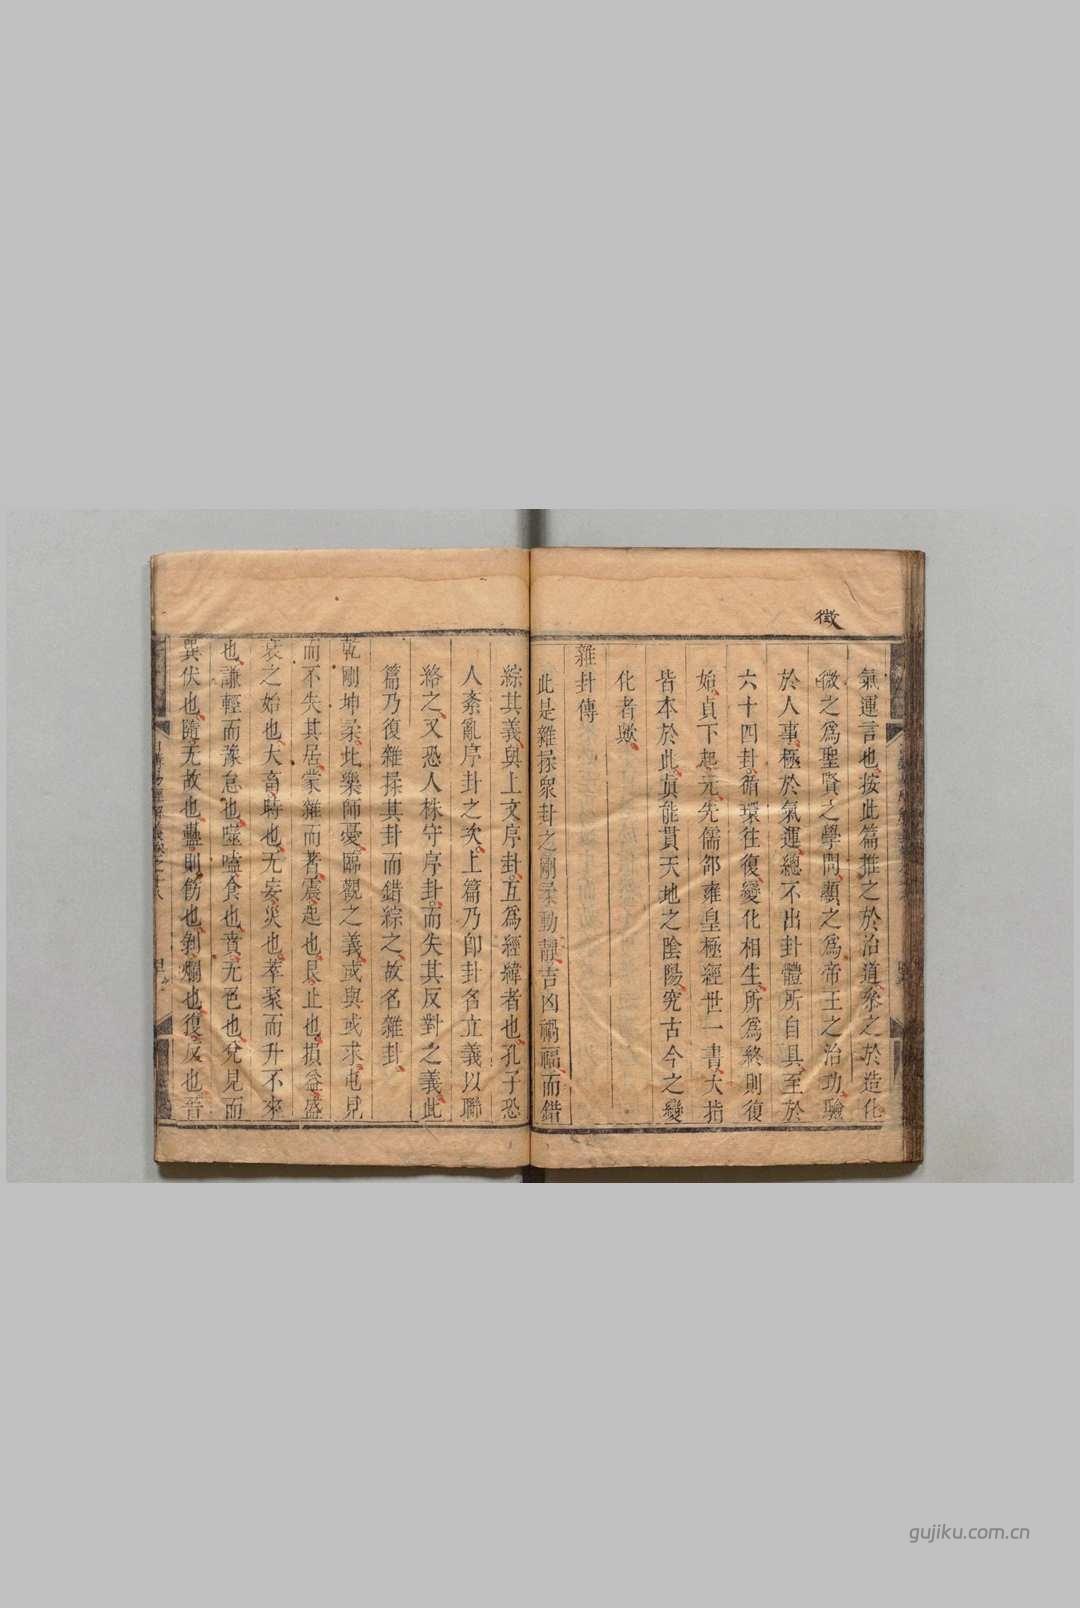 徵
氣運言也按此篇推之於治道叅之於造化
微之爲聖賢之學問顯之爲帝王之治功驗
於人事極於氣運總不出卦體所自具至於
六十四卦循環往復變化相生所爲終則復
始貞下起元先儒邵雍皇極經世一書大指
皆本於此真能貫天地之陰陽究古今之變
化者歟
雜卦傳
此是雜揉衆卦之剛柔動靜吉凶禍福而錯
綜其義與上文序卦互爲經緯者也孔子恐
人紊亂序卦之次上篇乃卽卦名立義以聯
絡之又恐人株守序卦而失其反對之義此
篇乃復雜揉其卦而錯綜之故名雜卦
乾剛坤柔比樂師憂臨觀之義或與或求屯見
而不失其居蒙雜而著震起也艮止也損益盛
衰之始也大畜時也无妄災也萃聚而升不來
也謙輕而豫怠也噬嗑食也賁无色也兌見而
巽伏也隨无故也蠱則飭也剝爛也復反也晉
gujiku.com.cn